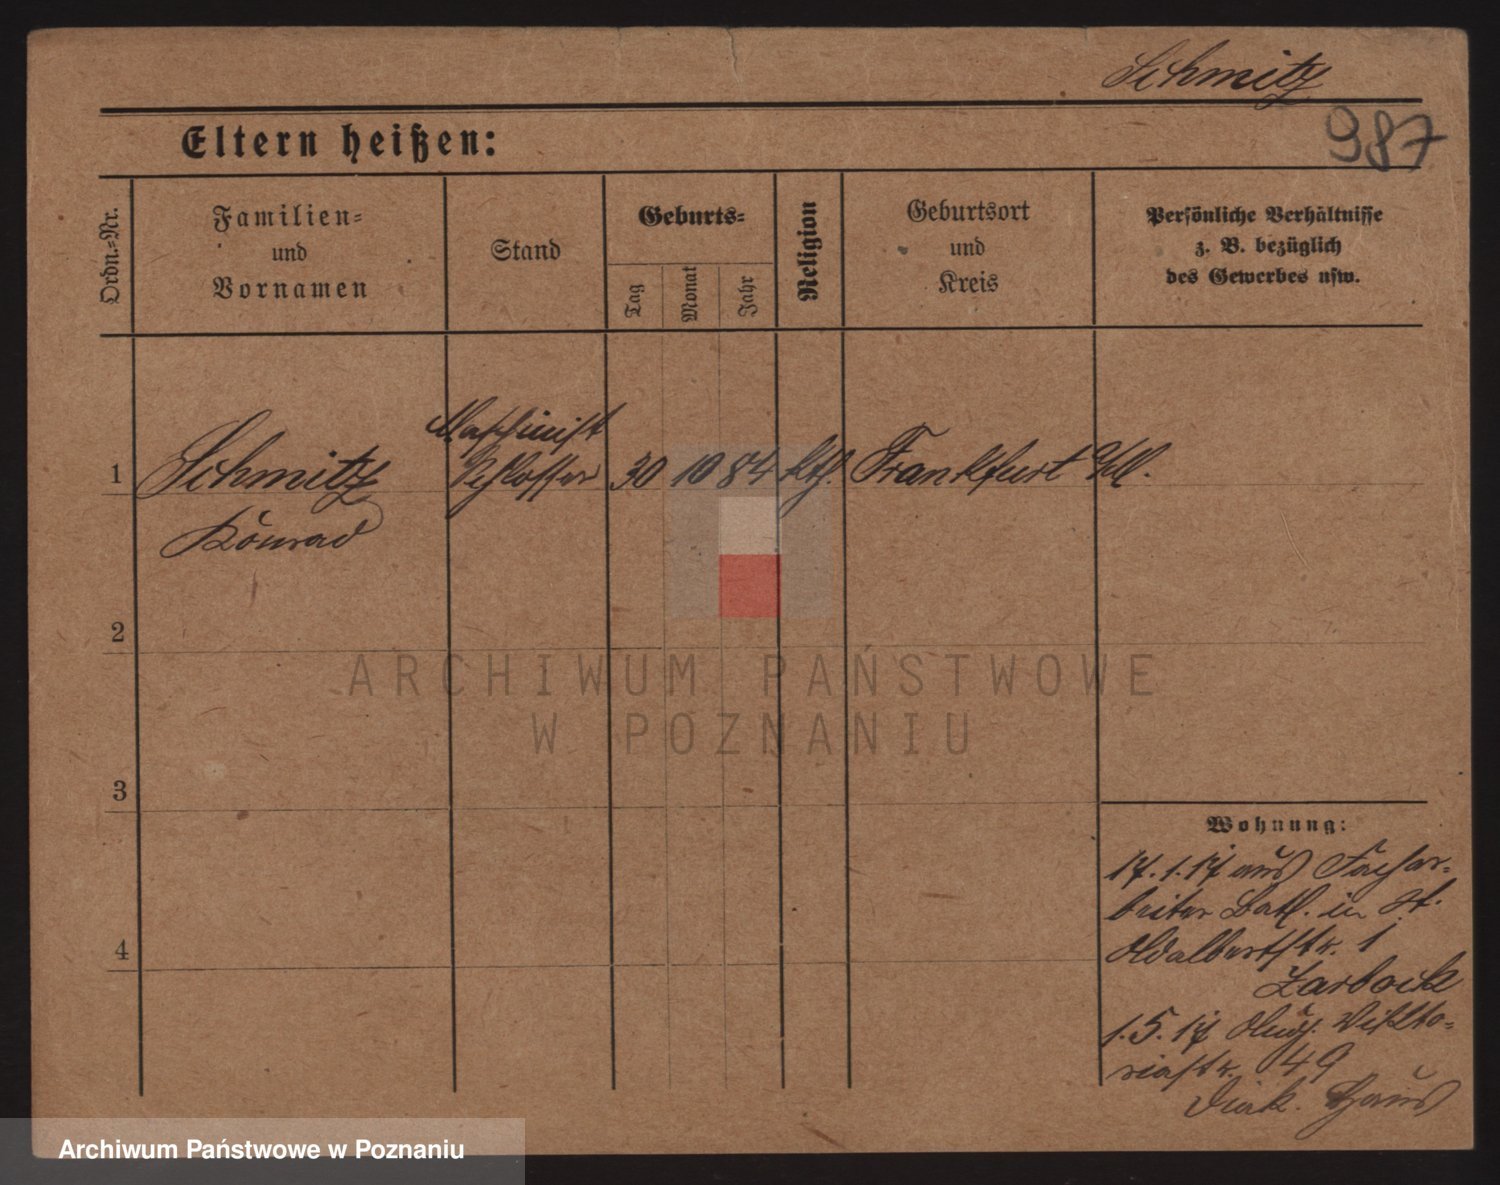 Schmitz
987
Eltern heißen:
Ordn.=Nr.
Familien=
und
Vornamen
Stand
Geburts=
Tag
Monat
Jahr
Religion
Geburtsort
und
Kreis
Persönliche Verhältnisse
z. B. bezüglich
des Gewerbes usw.
Maschinist
1 Schmitz Schlosser 30 10 84 kth. Frankfurt
Konrad
2
ARCHIWUM PAŃSTWOWE
W POZNANIU
3
Wohnung:
17.1.17 aus Fachar=
beiter Batl. in St.
Adalbertstr. 1
4
Zarbock
1.5.17 Aug. Vikto=
riastr. 49
Diak. Haus
Archiwum Państwowe w Poznaniu